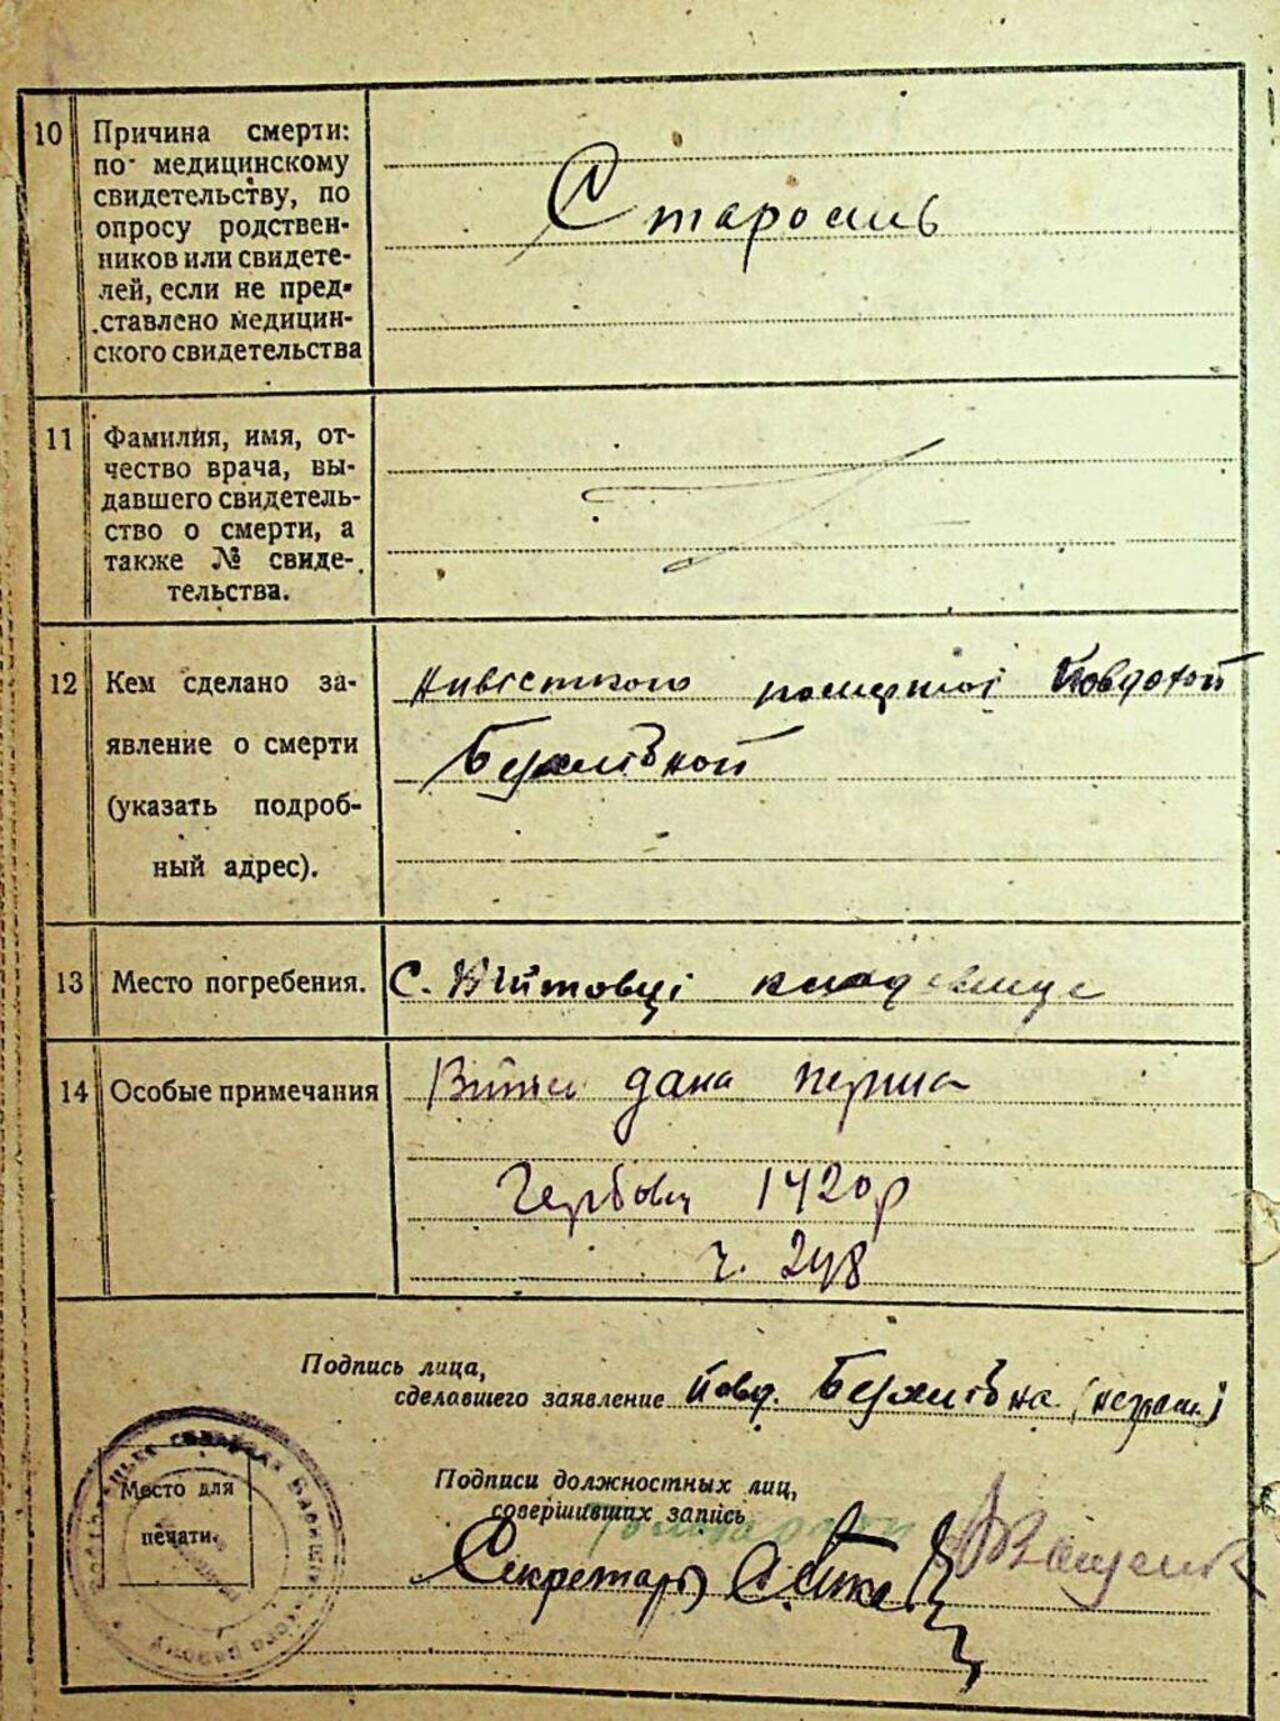 10 Причина смерти:
по медицинскому
свидетельству, по
опросу родствен-
ников или свидете-
лей, если не пред-
ставлено медицин-
ского свидетельства
Старость
11 Фамилия, имя, от-
чество врача, вы-
давшего свидетель-
ство о смерти, а
также № свиде-
тельства.
12 Кем сделано за-
явление о смерти
(указать подроб-
ный адрес).
помершої Йовдохой
13 Место погребения.
С. Війтовці кладовище
14 Особые примечания
дана перша
1420р
ч. 248
Подпись лица,
сделавшего заявление Йовд.
Место для
печати.
Подписи должностных лиц,
совершивших запись
Секретарь